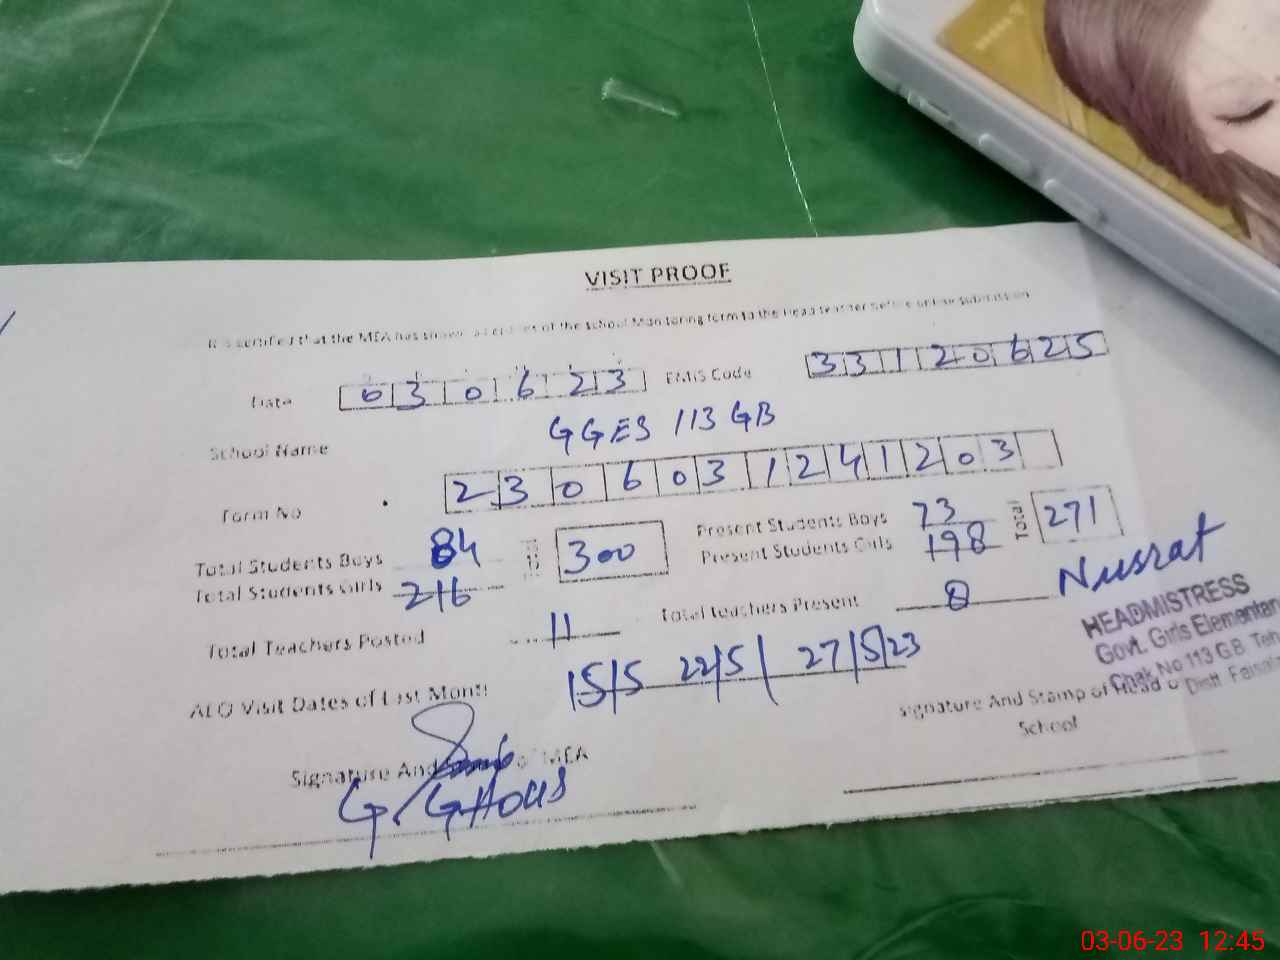 VISIT PROOF
It is certified that the MEA has shown all entries of the school Monitoring form to the Head teacher before online submission
Date 030623 EMIS Code 33120625
School Name GGES 113 GB
Form No 2306031241203
Total Students Boys 84 Total 300 Present Students Boys 73 Total 271
Total Students Girls 216 Present Students Girls 198
Total Teachers Posted 11 Total teachers Present 8 Nusrat
HEADMISTRESS
Govt. Girls Elementar
Chak No 113 G.B. Teh
Distt. Faisal
AEO Visit Dates of Last Month 15/5 22/5/ 27/5/23
Signature And Stamp of Head of School
Signature And of MEA
G. GHOUS
03-06-23 12:45